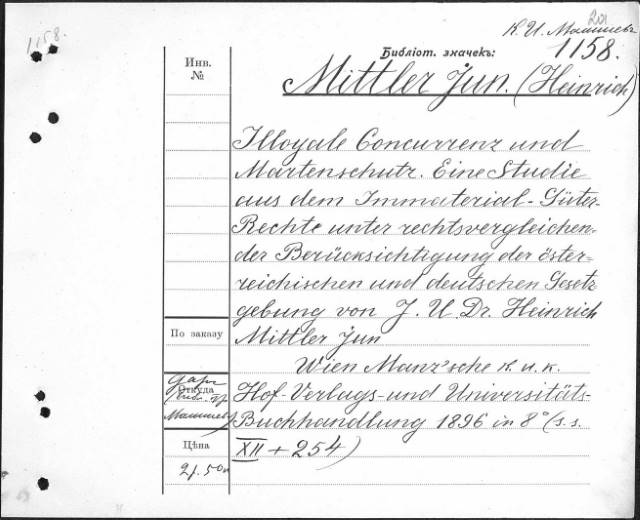 К. И. Малышевъ
20
1158.
1158.
Библіот. значекъ:
Инв.
№
Mittler Jun. (Heinrich)
Illoyale Concurrenz und
Markenschutz. Eine Studie
aus dem Immaterial-Güter-
Rechte unter rechtsvergleichen-
der Berücksichtigung der öster-
reichischen und deutschen Gesetz
gebung von J. U. Dr. Heinrich
По заказу
Mittler Jun
Wien Manz'sche K. u. K.
Откуда
Малышевъ
Hof-Verlags- und Universitäts-
Buchhandlung 1896 in 8° (s. s.
Цѣна
XII + 254)